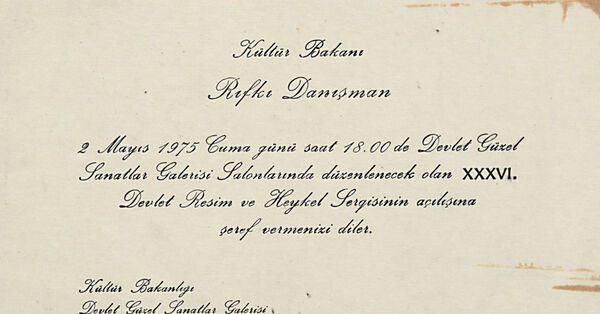 Kültür Bakanı
Rıfkı Danışman
2 Mayıs 1975 Cuma günü saat 18.00 de Devlet Güzel
Sanatlar Galerisi Salonlarında düzenlenecek olan XXXVI.
Devlet Resim ve Heykel Sergisinin açılışına
şeref vermenizi diler.
Kültür Bakanlığı
Devlet Güzel Sanatlar Galerisi